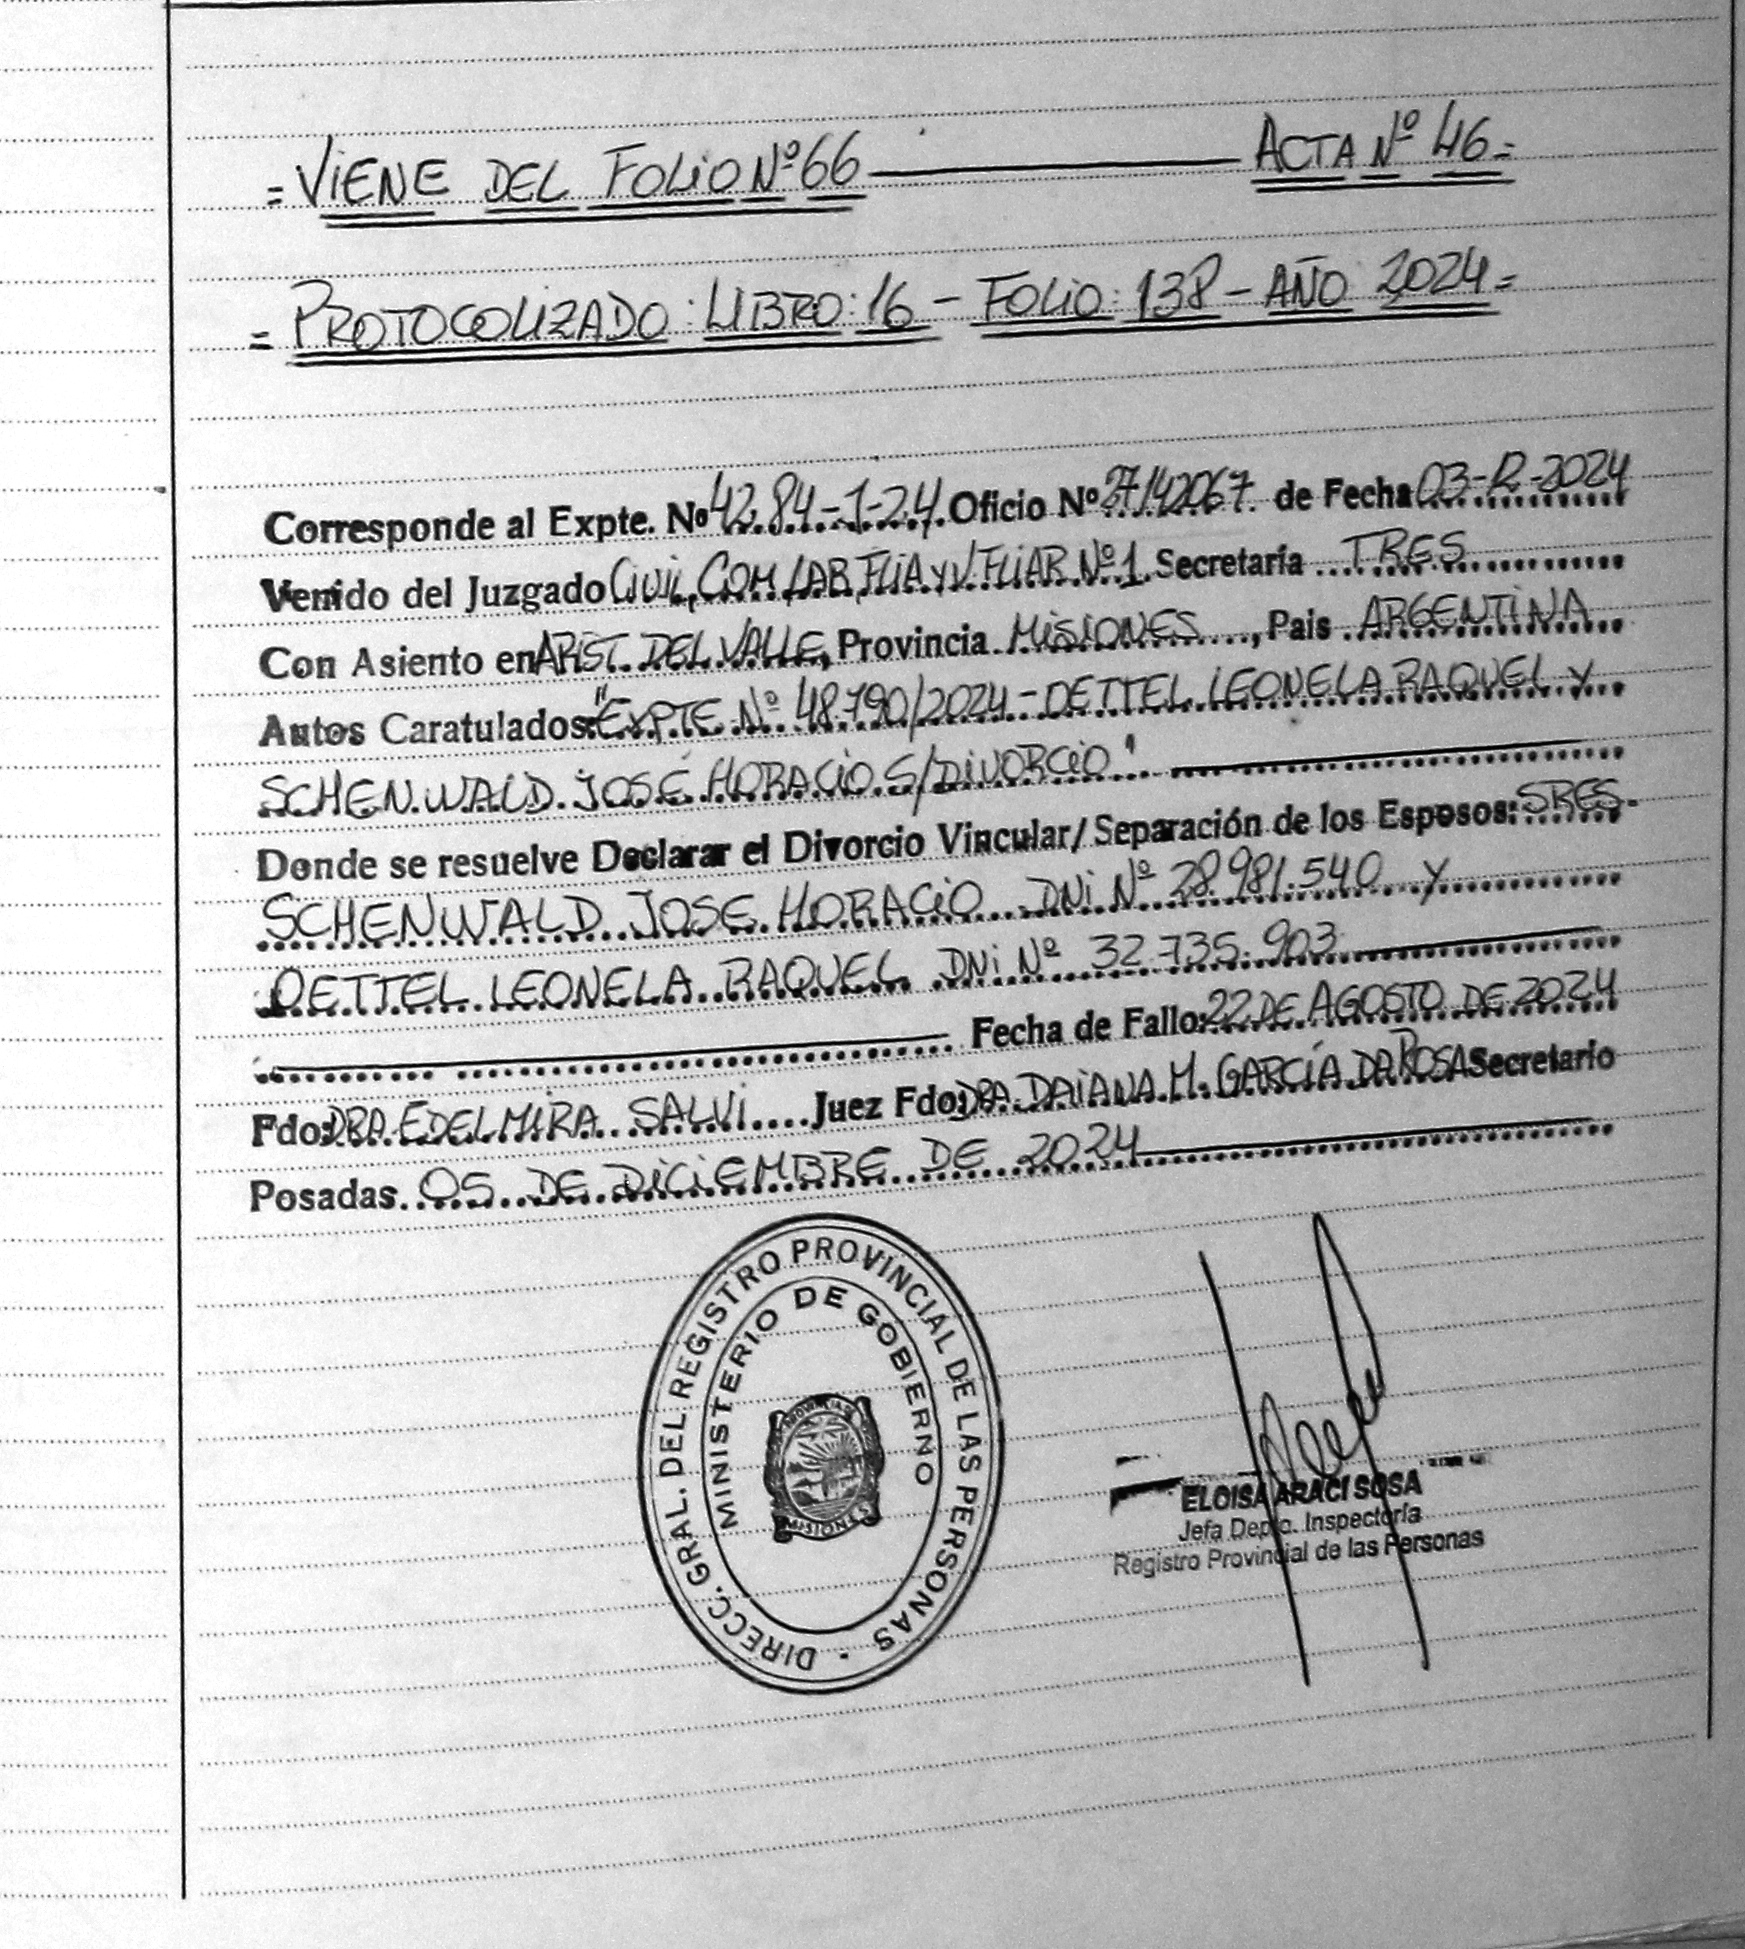 = VIENE DEL FOLIO Nº 66 ——— ACTA Nº 46 =
= PROTOCOLIZADO: LIBRO: 16 - FOLIO: 138 - AÑO 2024 =
Corresponde al Expte. Nº 4284-1-24 Oficio Nº 27142067 de Fecha 03-12-2024
Venido del Juzgado CIVIL, COM, LAB, FLIA Y V. FLIAR Nº 1 Secretaría TRES
Con Asiento en ARIST. DEL VALLE, Provincia MISIONES, Pais ARGENTINA
Autos Caratulados: "EXPTE Nº 48790/2024 - DETTEL LEONELA RAQUEL Y
SCHENWALD JOSÉ HORACIO S/DIVORCIO"
Donde se resuelve Declarar el Divorcio Vincular/Separación de los Esposos: SRES.
SCHENWALD JOSE HORACIO DNI Nº 28.981.540 Y
DETTEL LEONELA RAQUEL DNI Nº 32.735.903
Fecha de Fallo: 22 DE AGOSTO DE 2024
Fdo: DRA. EDELMIRA SALVI Juez Fdo: DRA. DAIANA M. GARCÍA DA ROSA Secretario
Posadas. 05 DE DICIEMBRE DE 2024
DIRECC. GRAL. DEL REGISTRO PROVINCIAL DE LAS PERSONAS
MINISTERIO DE GOBIERNO
MISIONES
ELOISA ARACI SOSA
Jefa Depto. Inspectoría
Registro Provincial de las Personas